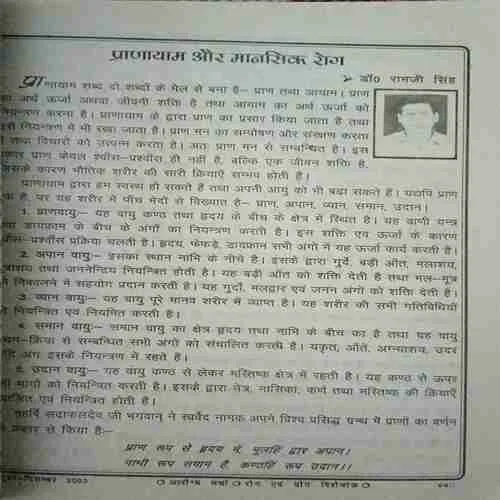 प्राणायाम और मानसिक रोग
➢ डॉ0 रामजी सिंह
प्राणायाम शब्द दो शब्दों के मेल से बना है– प्राण तथा आयाम। प्राण
का अर्थ ऊर्जा अथवा जीवनी शक्ति है तथा आयाम का अर्थ ऊर्जा को
नियन्त्रण करना है। प्राणायाम के द्वारा प्राण का प्रसार किया जाता है तथा
इसे नियन्त्रण में भी रखा जाता है। प्राण मन का सम्पोषण और संरक्षण करता
है तथा विचारों को उत्पन्न करता है। अतः प्राण मन से सम्बन्धित है। इस
प्रकार प्राण केवल श्वाँस–प्रश्वाँस ही नहीं है, बल्कि एक जीवन शक्ति है,
जिसके कारण भौतिक शरीर की सारी क्रियाएँ सम्पन्न होती हैं।
प्राणायाम द्वारा हम स्वस्थ हो सकते हैं तथा अपनी आयु को भी बढ़ा सकते हैं। यद्यपि प्राण
एक है, पर यह शरीर में पाँच भेदों से विख्यात है– प्राण, अपान, व्यान, समान, उदान।
1. प्राणवायु:– यह वायु कण्ठ तथा हृदय के बीच के क्षेत्र में स्थित है। यह वाणी यन्त्र
तथा डायफ्राम के बीच के अंगों का नियन्त्रण करती है। इस शक्ति एवं ऊर्जा के कारण
श्वाँस–प्रश्वाँस प्रक्रिया चलती है। हृदय, फेफड़े, डायफ्राम सभी अंगों में यह ऊर्जा कार्य करती है।
2. अपान वायु:– इसका स्थान नाभि के नीचे है। इसके द्वारा गुर्दे, बड़ी आँत, मलाशय,
मूत्राशय तथा जननेन्द्रिय नियन्त्रित होती है। यह बड़ी आँत को शक्ति देती है तथा मल–मूत्र
को निकालने में सहयोग प्रदान करती है। यह गुर्दों, मलद्वार एवं जनन अंगों को शक्ति देती है।
3. व्यान वायु:– यह वायु पूरे मानव शरीर में व्याप्त है। यह शरीर की सभी गतिविधियों
को नियन्त्रित एवं नियमित करती है।
4. समान वायु:– समान वायु का क्षेत्र हृदय तथा नाभि के बीच का है तथा यह वायु
पाचन–क्रिया से सम्बन्धित सभी अंगों को संचालित करती है। यकृत, आँतें, अग्न्याशय, उदर
आदि अंग इसके नियन्त्रण में रहते हैं।
5. उदान वायु:– यह वायु कण्ठ से लेकर मस्तिष्क क्षेत्र में रहती है। यह कण्ठ से ऊपर
के भागों को नियन्त्रित करती है। इसके द्वारा नेत्र, नासिका, कर्ण तथा मस्तिष्क की क्रियाएँ
एवं नियन्त्रित होती हैं।
महर्षि सदाफलदेव जी भगवान् ने स्वर्वेद नामक अपने विश्व प्रसिद्ध ग्रन्थ में प्राणों का वर्णन
प्रकार से किया है:–
प्राण रूप से हृदय में, मूलहिं द्वार अपान।
नाभी रूप समान है, कण्ठहिं रूप उदान।।
दिसम्बर 2003
❍ आरोग्य चर्चा ❍ रोग एवं योग विशेषांक ❍